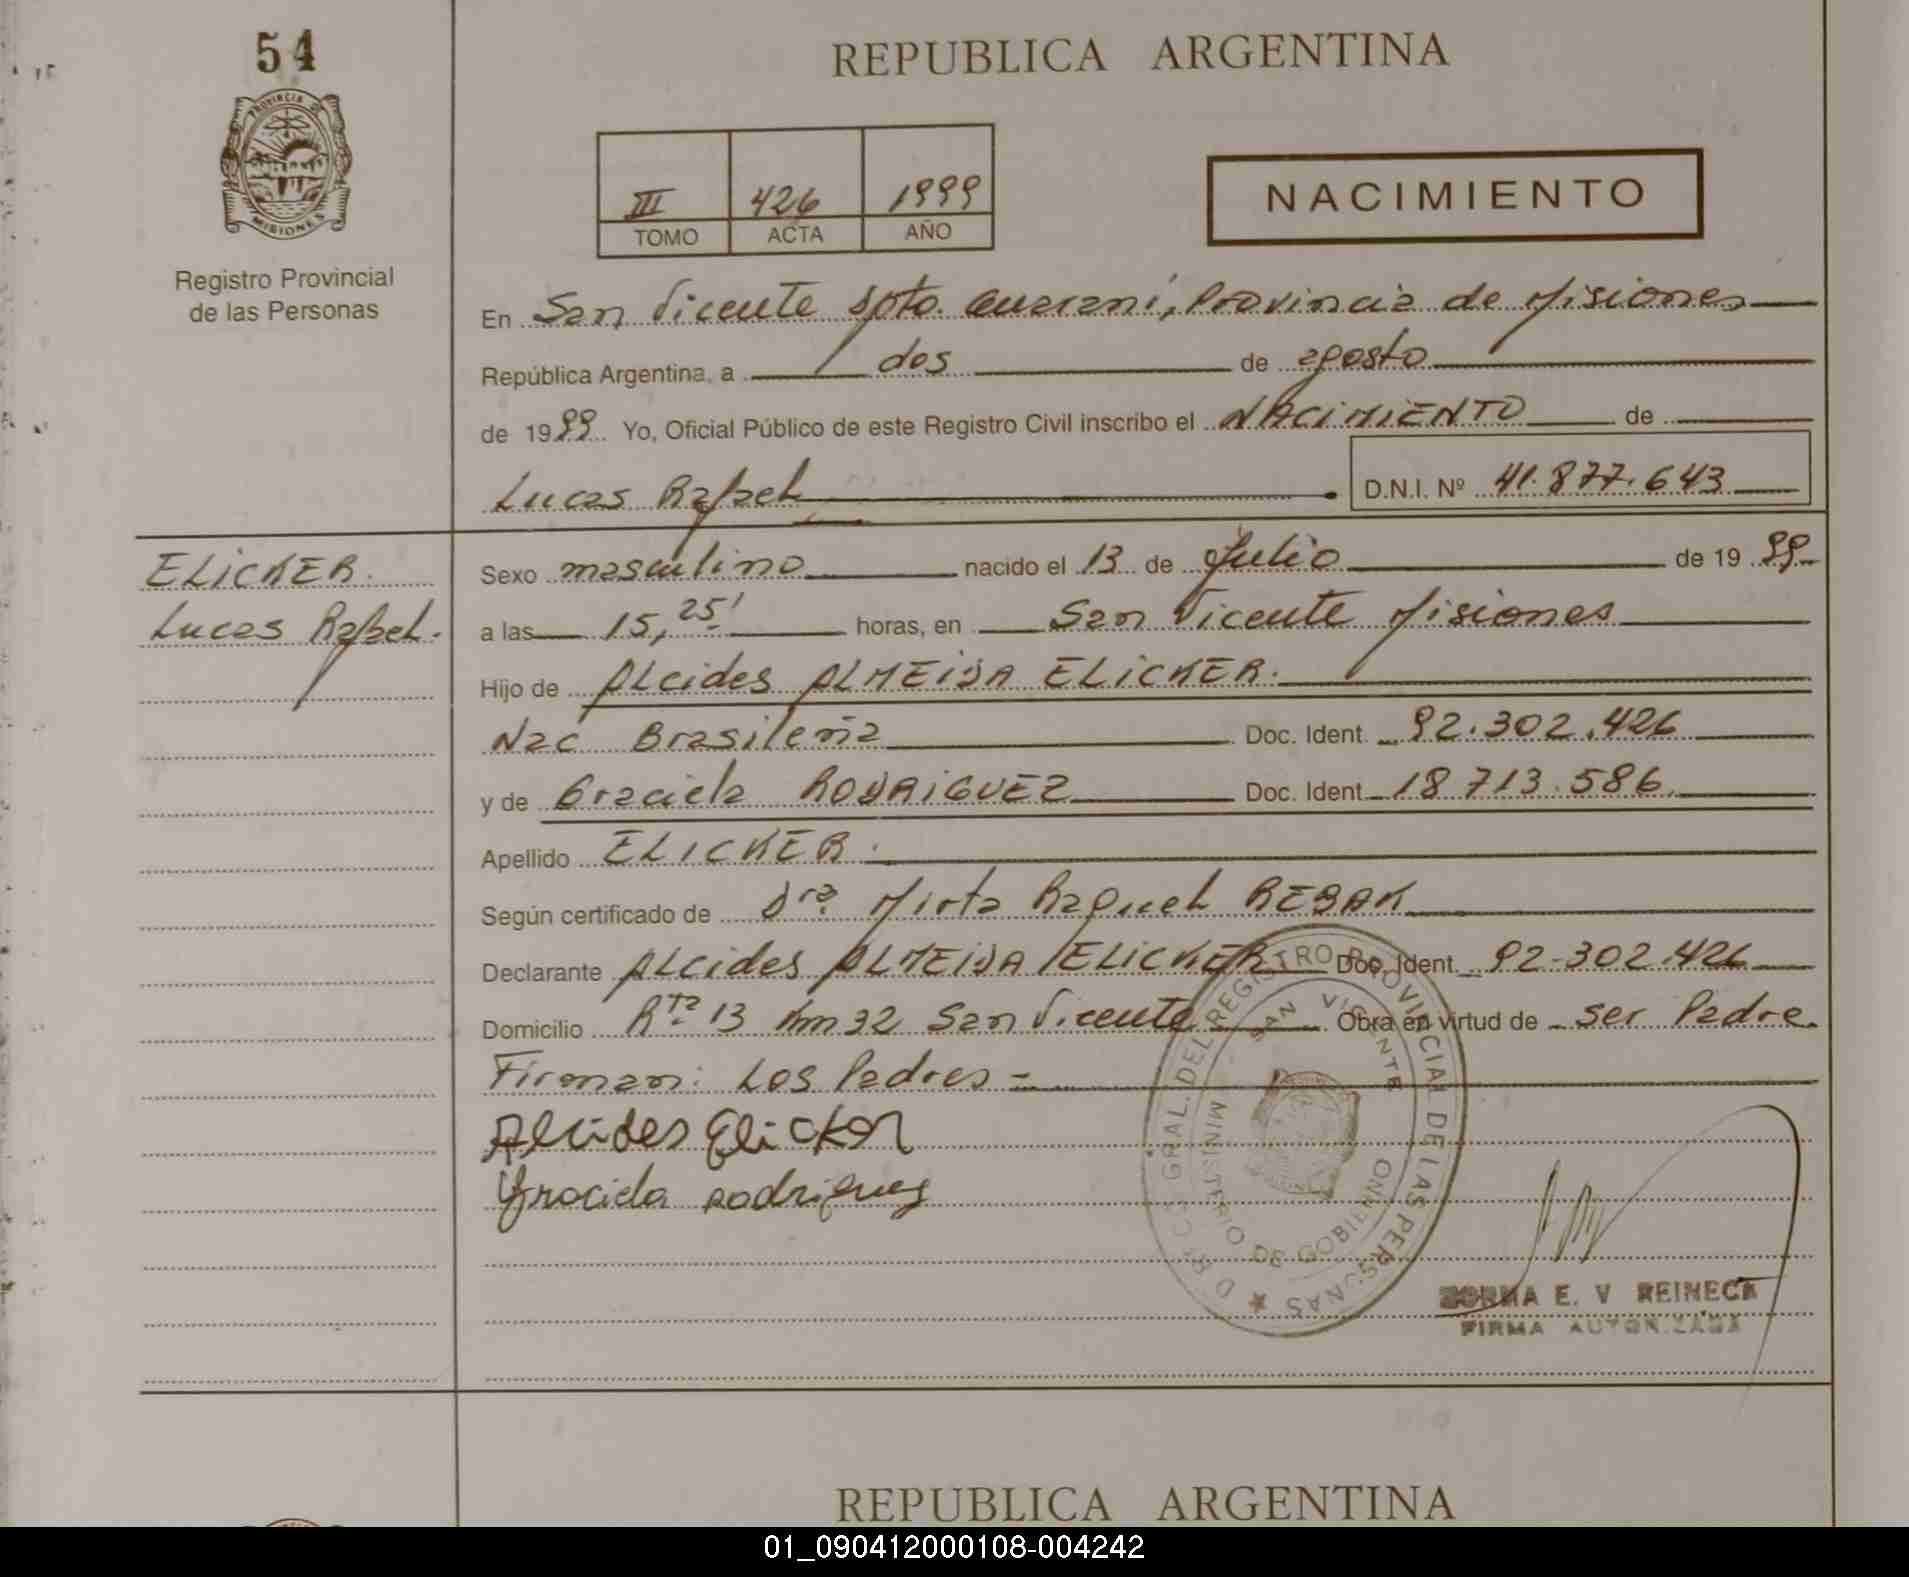 54
PROVINCIA DE
MISIONES
Registro Provincial
de las Personas
REPUBLICA ARGENTINA
III 426 1999
TOMO ACTA AÑO
NACIMIENTO
En San Vicente Dpto. Guarani, Provincia de Misiones
República Argentina, a dos de agosto
de 1999 Yo, Oficial Público de este Registro Civil inscribo el NACIMIENTO de
Lucas Rafael D.N.I. Nº 41.877.643
ELICKER.
Lucas Rafael.
Sexo masculino nacido el 13 de Julio de 1999
a las 15,25' horas, en San Vicente Misiones
Hijo de Alcides ALMEIDA ELICKER.
Nac Brasileña Doc. Ident. 92.302.426
y de Graciela RODRIGUEZ Doc. Ident. 18.713.586
Apellido ELICKER.
Según certificado de Dra Mirta Raquel
Declarante Alcides ALMEIDA ELICKER Doc. Ident. 92.302.426
Domicilio Rta 13 Km 32 San Vicente Obra en virtud de ser Padre.
Firman: Los Padres -
Alcides Elicker
Graciela rodriguez
GRAL. DEL REGISTRO PROVINCIAL DE LAS PERSONAS
SAN VICENTE
MINISTERIO DE GOBIERNO
E. V REINECK
FIRMA AUTORIZADA
REPUBLICA ARGENTINA
01_090412000108-004242